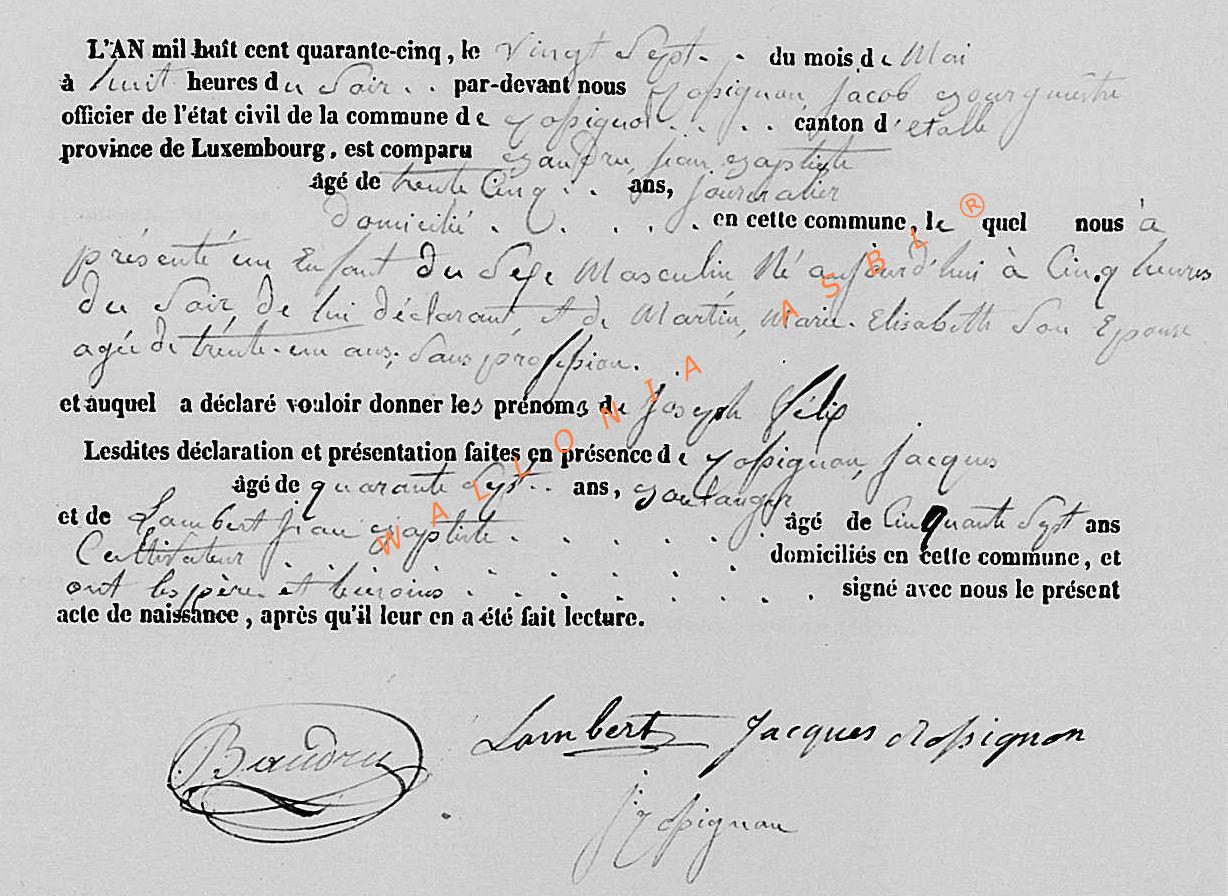 L'AN mil huit cent quarante-cinq, le Vingt Sept. . du mois de Mai
à huit heures du Soir . . par-devant nous Rossignon Jacob Bourgmestre
officier de l'état civil de la commune de Rossignol . . . . canton d'etalle
province de Luxembourg, est comparu Baudru Jean Baptiste
âgé de trente Cinq . . ans, Journalier
domicilié . . . . . . en cette commune, le quel nous à
présenté un Enfant du Sexe Masculin Né aujourd'hui à Cinq heures
du Soir, de lui déclarant, et de Martin, Marie-Elisabeth Son Epouse
agée de trente-un ans, Sans profession.
et auquel a déclaré vouloir donner les prénoms de Joseph Félix
Lesdites déclaration et présentation faites en présence de Rossignon, Jacques
âgé de quarante Sept . . ans, Boulanger
et de Lambert Jean Baptiste . . . . . . âgé de Cinquante Sept ans
Cultivateur . . . . . . . . domiciliés en cette commune, et
ont les père et témoins . . . . . . . signé avec nous le présent
acte de naissance, après qu'il leur en a été fait lecture.
Baudru Lambert Jacques Rossignon
J Rossignon
WALLONIA ASBL ®